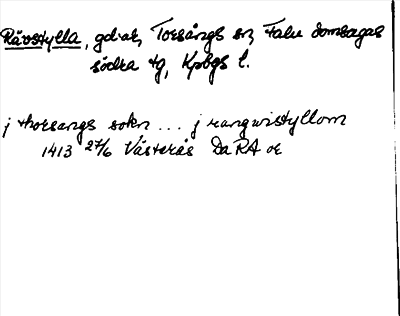 Rävstylla, gd:ar, Torsångs sn, Falu domsagas
södra tg, Kpbgs l.
j thorsangs sokn ... j rangwistyllom
1413 27/6 Västerås DaRA or